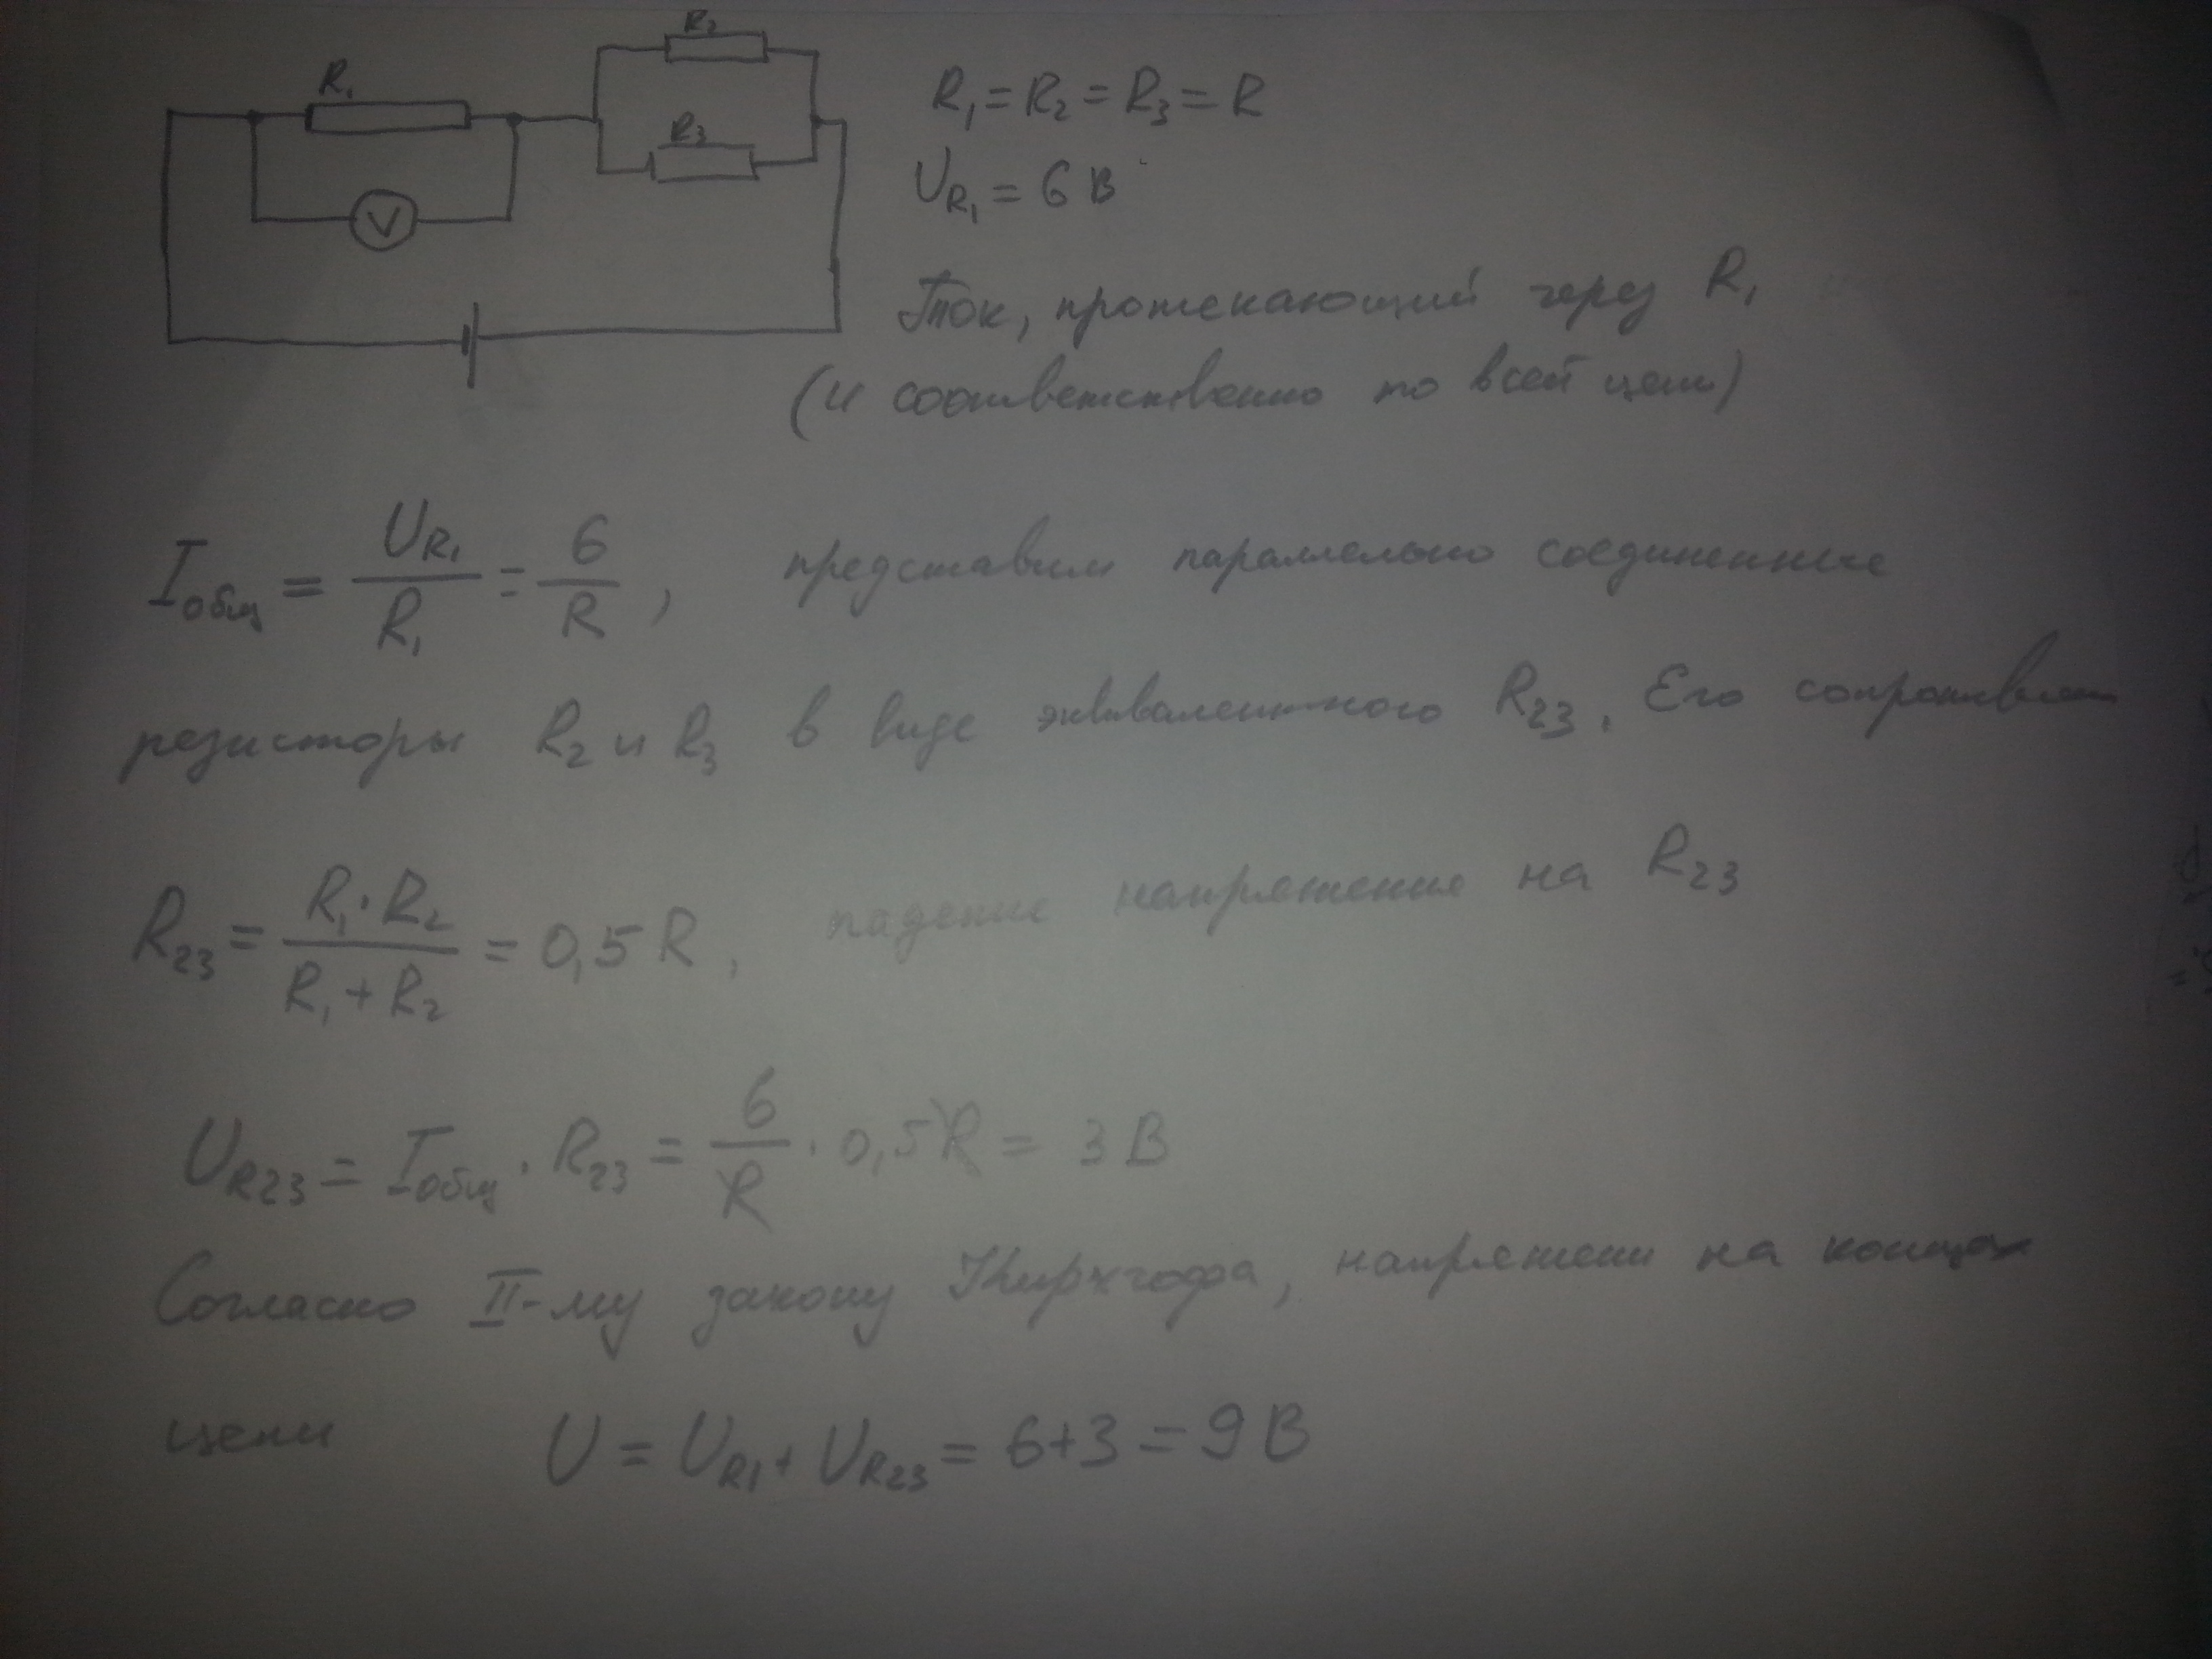 R₁
R₂
R₃
V
R₁ = R₂ = R₃ = R
U_R₁ = 6 В
Ток, протекающий через R₁
(и соответственно по всей цепи)
I_общ = U_R₁ / R₁ = 6 / R , представим параллельно соединенные
резисторы R₂ и R₃ в виде эквивалентного R₂₃. Его сопротивлен
R₂₃ = R₁·R₂ / R₁+R₂ = 0,5 R , падение напряжение на R₂₃
U_R23 = I_общ · R₂₃ = 6 / R · 0,5R = 3 В
Согласно II-му закону Кирхгофа, напряжени на концах
цепи U = U_R1 + U_R23 = 6+3 = 9 В